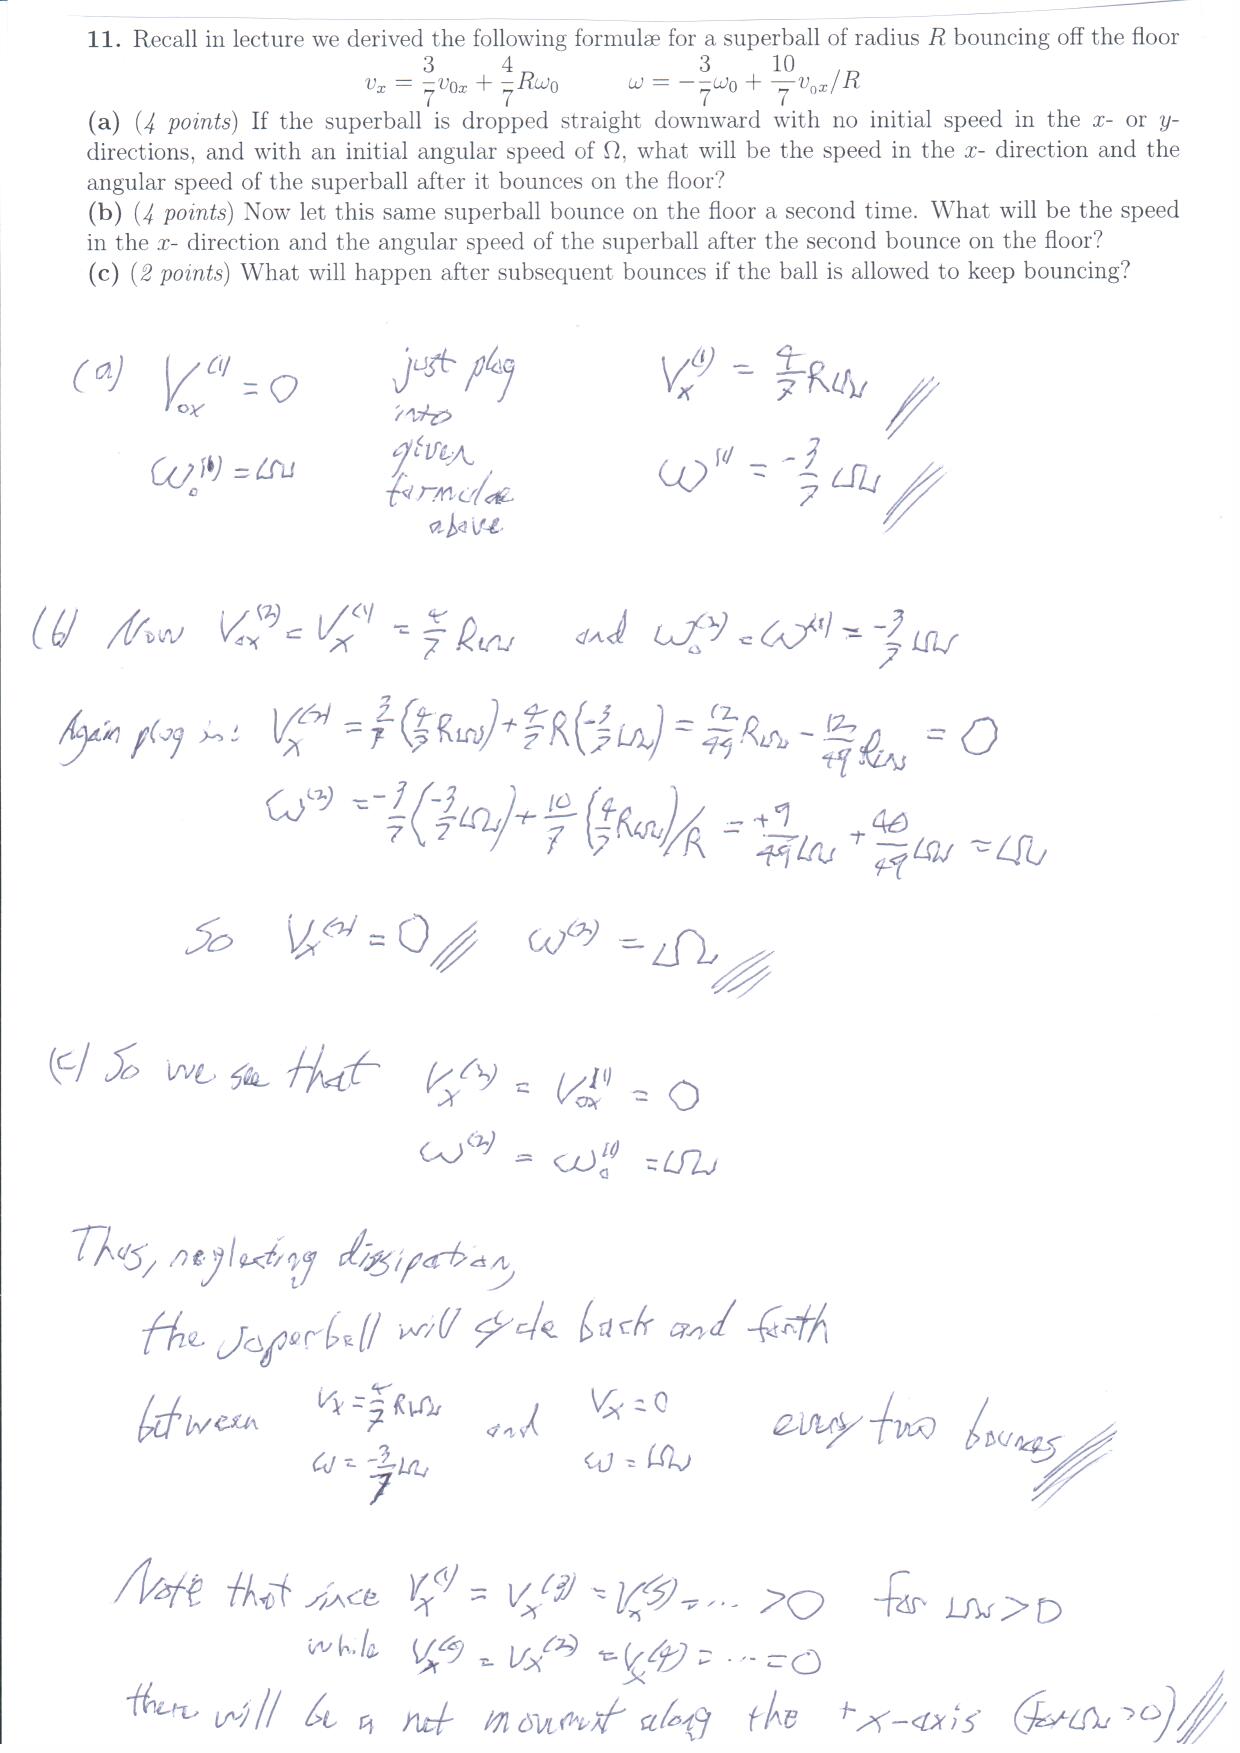 11. Recall in lecture we derived the following formulæ for a superball of radius R bouncing off the floor
v_x = 3/7 v_{0x} + 4/7 Rω_0    ω = -3/7 ω_0 + 10/7 v_{ox}/R
(a) (4 points) If the superball is dropped straight downward with no initial speed in the x- or y-
directions, and with an initial angular speed of Ω, what will be the speed in the x- direction and the
angular speed of the superball after it bounces on the floor?
(b) (4 points) Now let this same superball bounce on the floor a second time. What will be the speed
in the x- direction and the angular speed of the superball after the second bounce on the floor?
(c) (2 points) What will happen after subsequent bounces if the ball is allowed to keep bouncing?
(a) V_{ox}^{(1)} = 0    just plug    V_x^{(1)} = 4/7 RΩ
into
ω_o^{(1)} = Ω    given    ω^{(1)} = -3/7 Ω
formulae
above
(b) Now V_{ox}^{(2)} = V_x^{(1)} = 4/7 RΩ and ω_o^{(2)} = ω^{(1)} = -3/7 Ω
Again plug in: V_x^{(2)} = 3/7 (4/7 RΩ) + 4/7 R(-3/7 Ω) = 12/49 RΩ - 12/49 RΩ = 0
ω^{(2)} = -3/7 (-3/7 Ω) + 10/7 (4/7 RΩ)/R = +9/49 Ω + 40/49 Ω = Ω
So V_x^{(2)} = 0    ω^{(2)} = Ω
(c) So we see that V_x^{(2)} = V_{ox}^{(1)} = 0
ω^{(2)} = ω_o^{(1)} = Ω
Thus, neglecting dissipation,
the superball will cycle back and forth
between V_x = 4/7 RΩ and V_x = 0 every two bounces
ω = -3/7 Ω    ω = Ω
Note that since V_x^{(1)} = V_x^{(3)} = V_x^{(5)} = ... > 0 for Ω > 0
while V_x^{(0)} = V_x^{(2)} = V_x^{(4)} = ... = 0
there will be a net movement along the + x-axis (for Ω > 0)